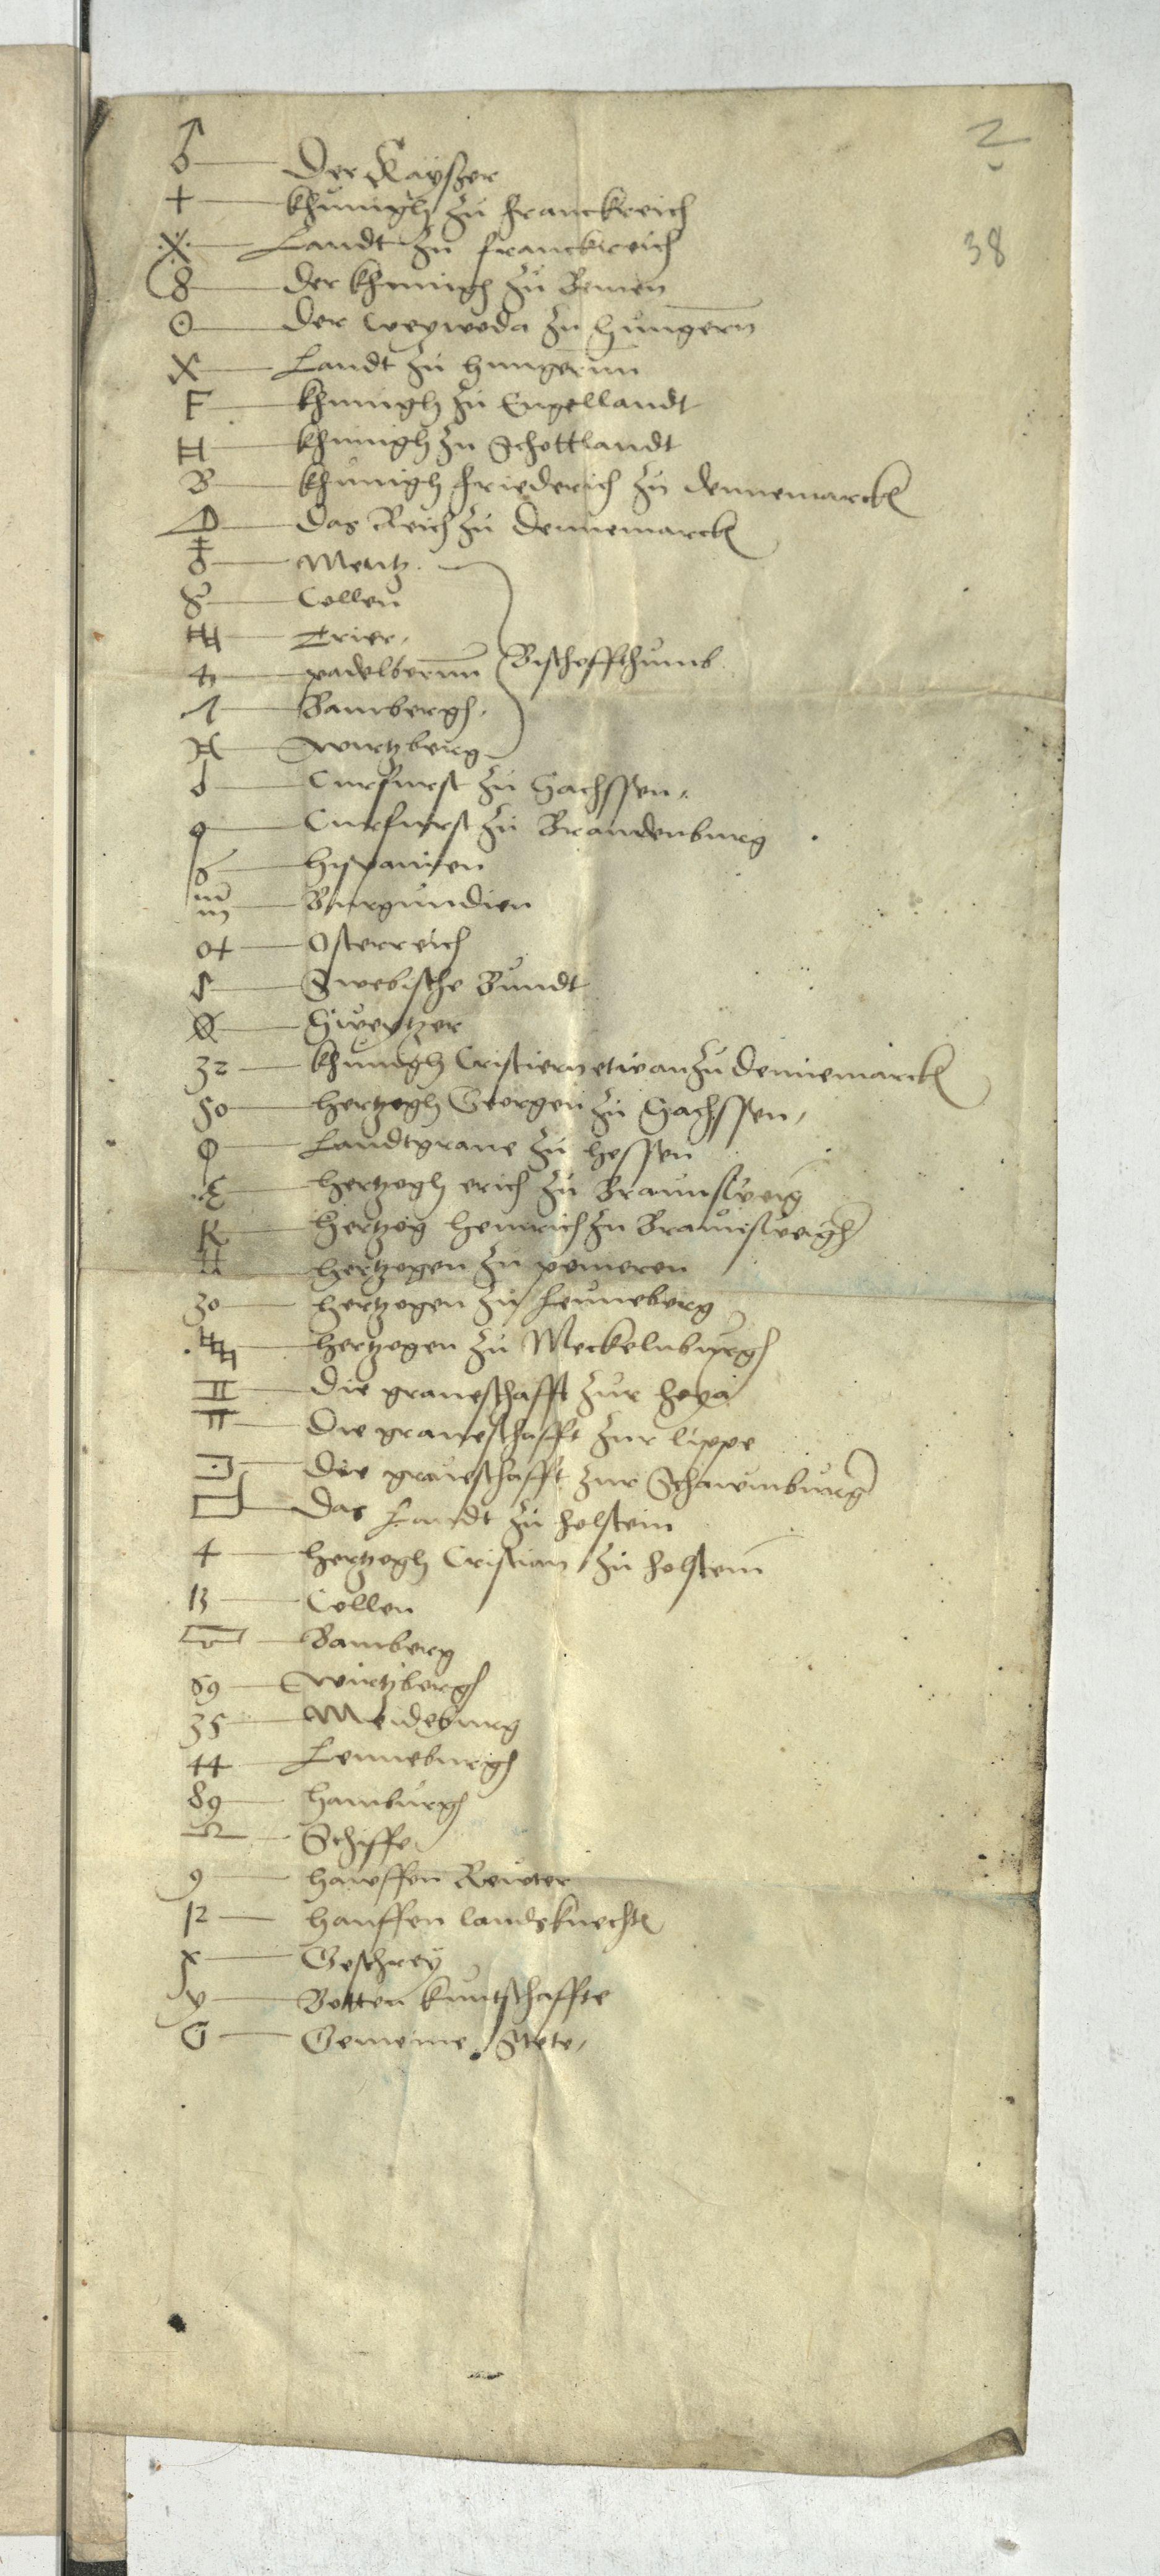 2
38
Der Kayßer
+ khunigh zu Franckreich
Landt zu franckreich
8 der khunigh zu Bemen
⊙ der weywoda zu hungern
X Landt zu hungernn
F khunigh zu Engellandt
H khunigh zu Schottlandt
B khunigh Friederich zu dennemarck
D das Reich zu dennemarck
Mentz
Collen
Trier
padelbernn Bischoffthumb
Bambergh
wurtzburg
Curfurst zu Sachssen
Curfurst zu Brandenburg
hispanien
Burgundien
o+ Osterreich
Swebische Bundt
Ø Sweytzer
32 khunigh Cristiern etwan zu dennemarck
50 hertzogh Georgen zu Sachssen
Landtgraue zu hessen
hertzogh erich zu Braunsweig
K hertzog heinrich zu Braunsweigh
hertzogen zu pomeren
30 hertzogen zu Leuneberg
hertzogen zu Meckelnburgh
II die graueschafft zur hoya
die graueschafft zur lippe
die graueschafft zur Schawmburg
das Landt zu holstein
+ hertzogh Cristian zu holstein
13 Collen
Bamberg
59 wurtzbergh
35 Meideburg
++ Lenneburgh
89 hamburgh
Schiffe
9 hauffen Reuter
12 hauffen landsknecht
x Geschrey
y Botten kuntschaffte
G Gemeine Stete